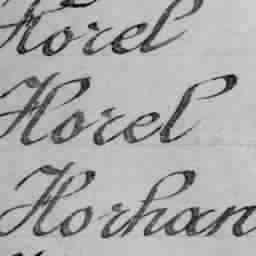 Horel
Horel
Horhan